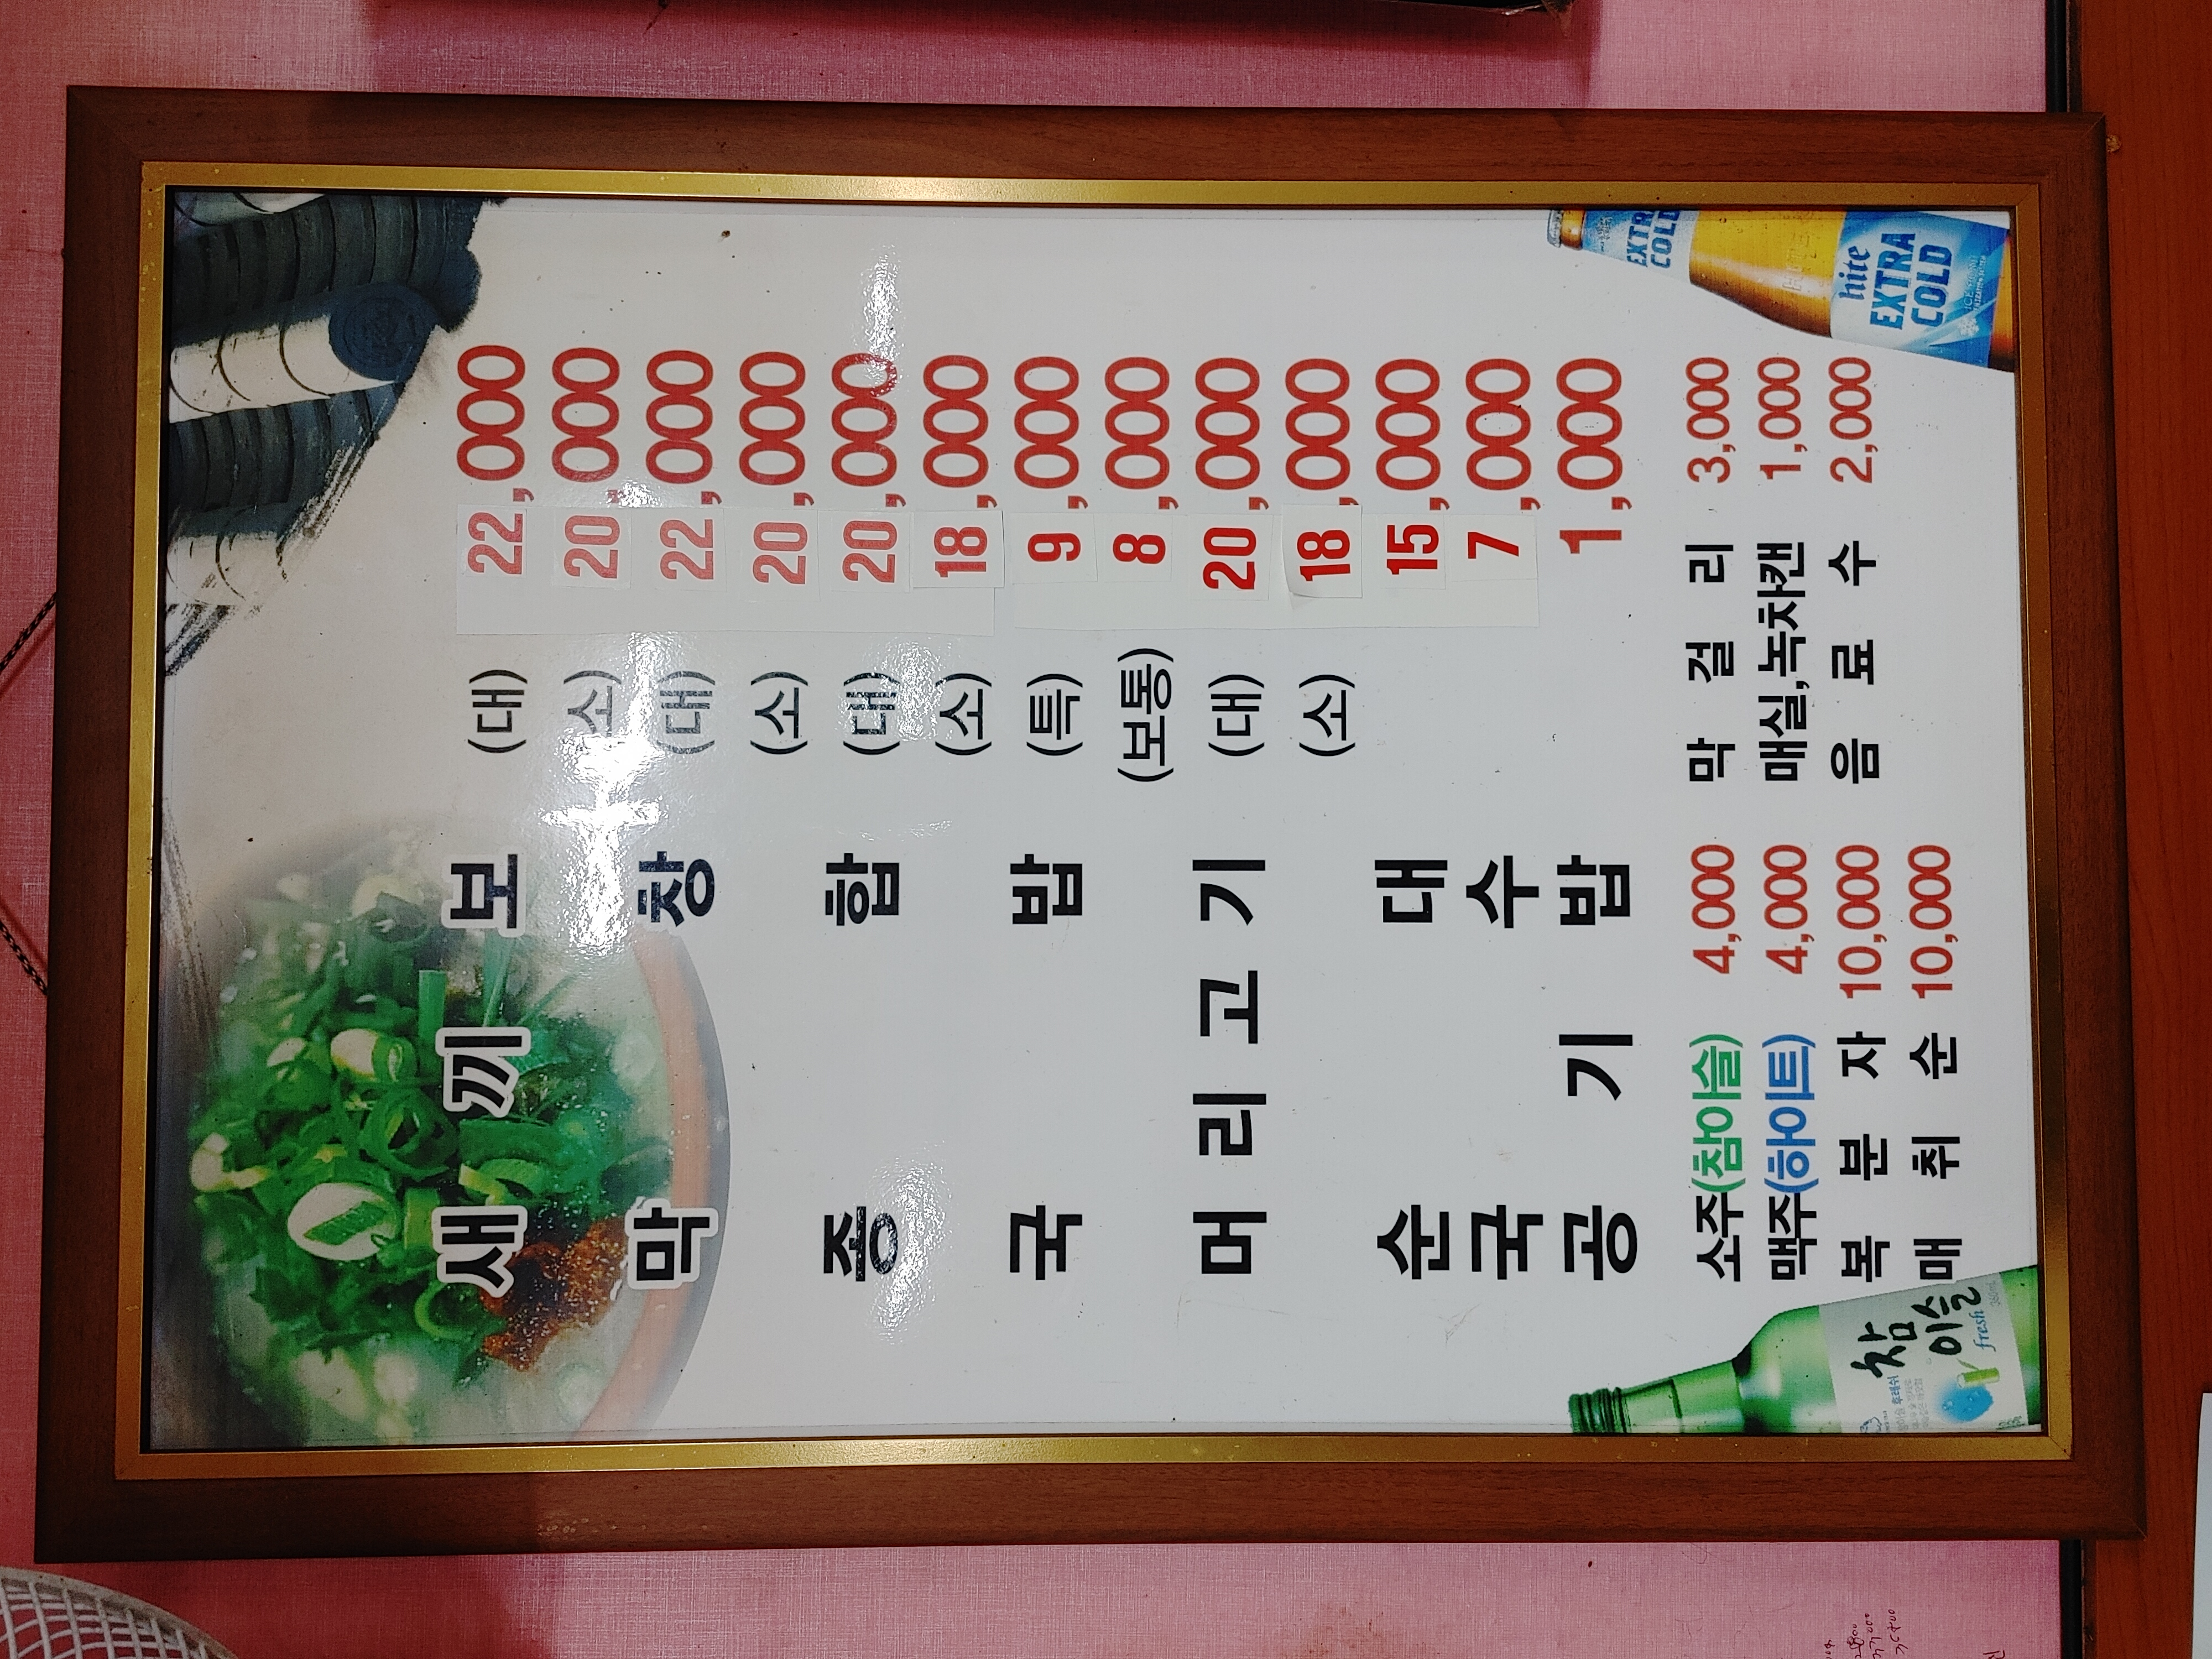 새끼보 (대) 22,000
(소) 20,000
막창 (대) 22,000
(소) 20,000
종합 (대) 20,000
(소) 18,000
국밥 (특) 9,000
(보통) 8,000
머리고기 (대) 20,000
(소) 18,000
순대 15,000
국수 7,000
공기밥 1,000
소주(참이슬) 4,000 막걸리 3,000
맥주(하이트) 4,000 매실,녹차캔 1,000
복분자 10,000 음료수 2,000
매취순 10,000
참이슬
fresh
EXTRA
COLD
hite
EXTRA
COLD